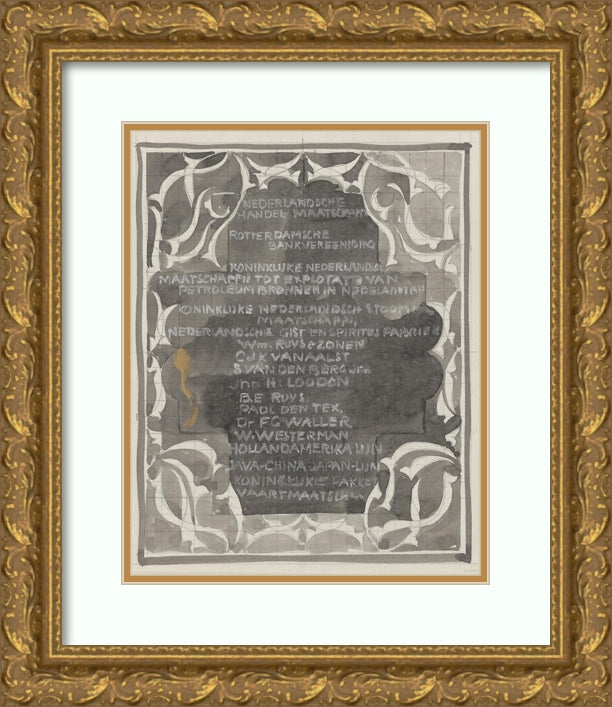 NEDERLANDSCHE
HANDEL MAATSCHAPPI
ROTTERDAMSCHE
BANKVEREENIGING
KONINKLIJKE NEDERLANDSC
MAATSCHAPPIJ TOT EXPLOTATE VAN
PETROLEUM BRONNEN IN NEDERLINDII
KONINKLIJKE NEDERLANDSCH STOOM
MAATSCHAPPIJ
NEDERLANDSCHE GIST EN SPIRITUS FABRIEK
Wm. RUYS & ZONEN
C.J.K VAN AALST
S VAN DEN BERG Jr.
Jhr. H. LOUDON
B.E RUYS.
PAUL DEN TEX,
Dr. F.G WALLER
W. WESTERMAN
HOLLAND AMERIKA LIJN
JAVA-CHINA-JAPAN-LIJN
KONINKLIJKE PAKKET
VAART MAATSCH